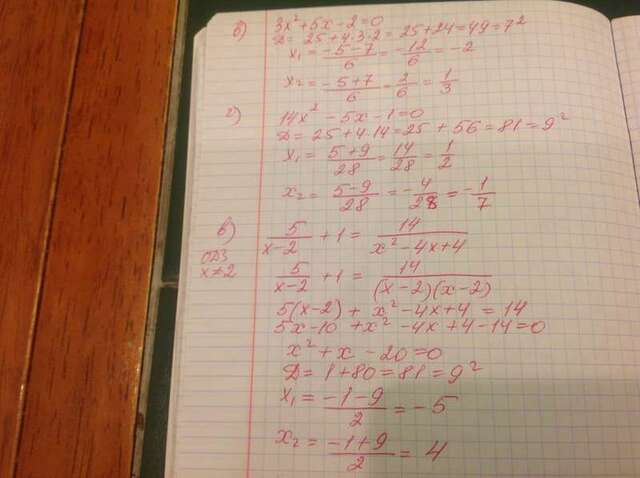 б) 3x² + 5x - 2 = 0
D = 25 + 4·3·2 = 25 + 24 = 49 = 7²
x₁ = (-5-7)/6 = -12/6 = -2
x₂ = (-5+7)/6 = 2/6 = 1/3
г) 14x² - 5x - 1 = 0
D = 25 + 4·14 = 25 + 56 = 81 = 9²
x₁ = (5+9)/28 = 14/28 = 1/2
x₂ = (5-9)/28 = -4/28 = -1/7
в) 5/(x-2) + 1 = 14/(x² - 4x + 4)
ОДЗ
x ≠ 2
5/(x-2) + 1 = 14/((x-2)(x-2))
5(x-2) + x² - 4x + 4 = 14
5x - 10 + x² - 4x + 4 - 14 = 0
x² + x - 20 = 0
D = 1 + 80 = 81 = 9²
x₁ = (-1-9)/2 = -5
x₂ = (-1+9)/2 = 4